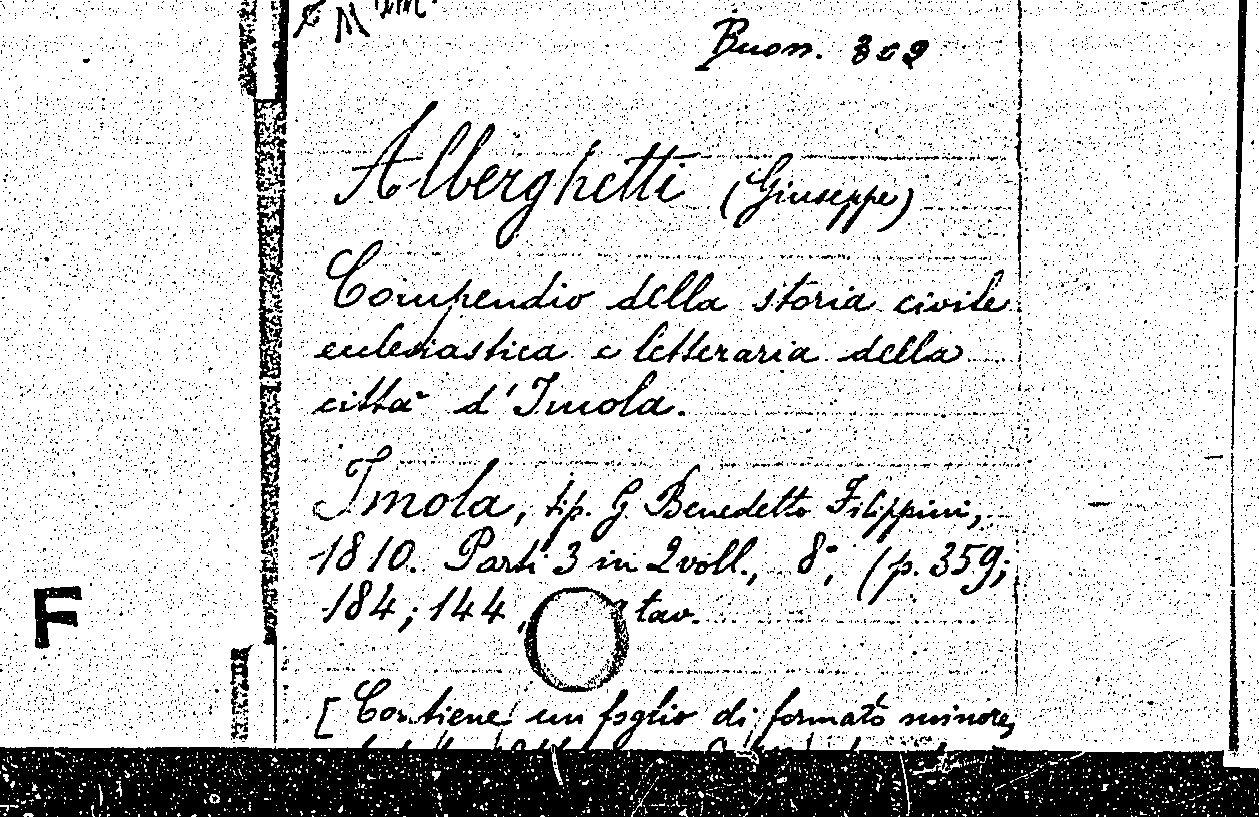 Buon. 302
Alberghetti (Giuseppe)
Compendio della storia civile
ecclesiastica e letteraria della
città d'Imola.
Imola, tip. G Benedetto Filippini,
1810. Parti 3 in 2 voll., 8°, (p. 359;
184; 144, tav.
F
[Contiene un foglio di formato minore,